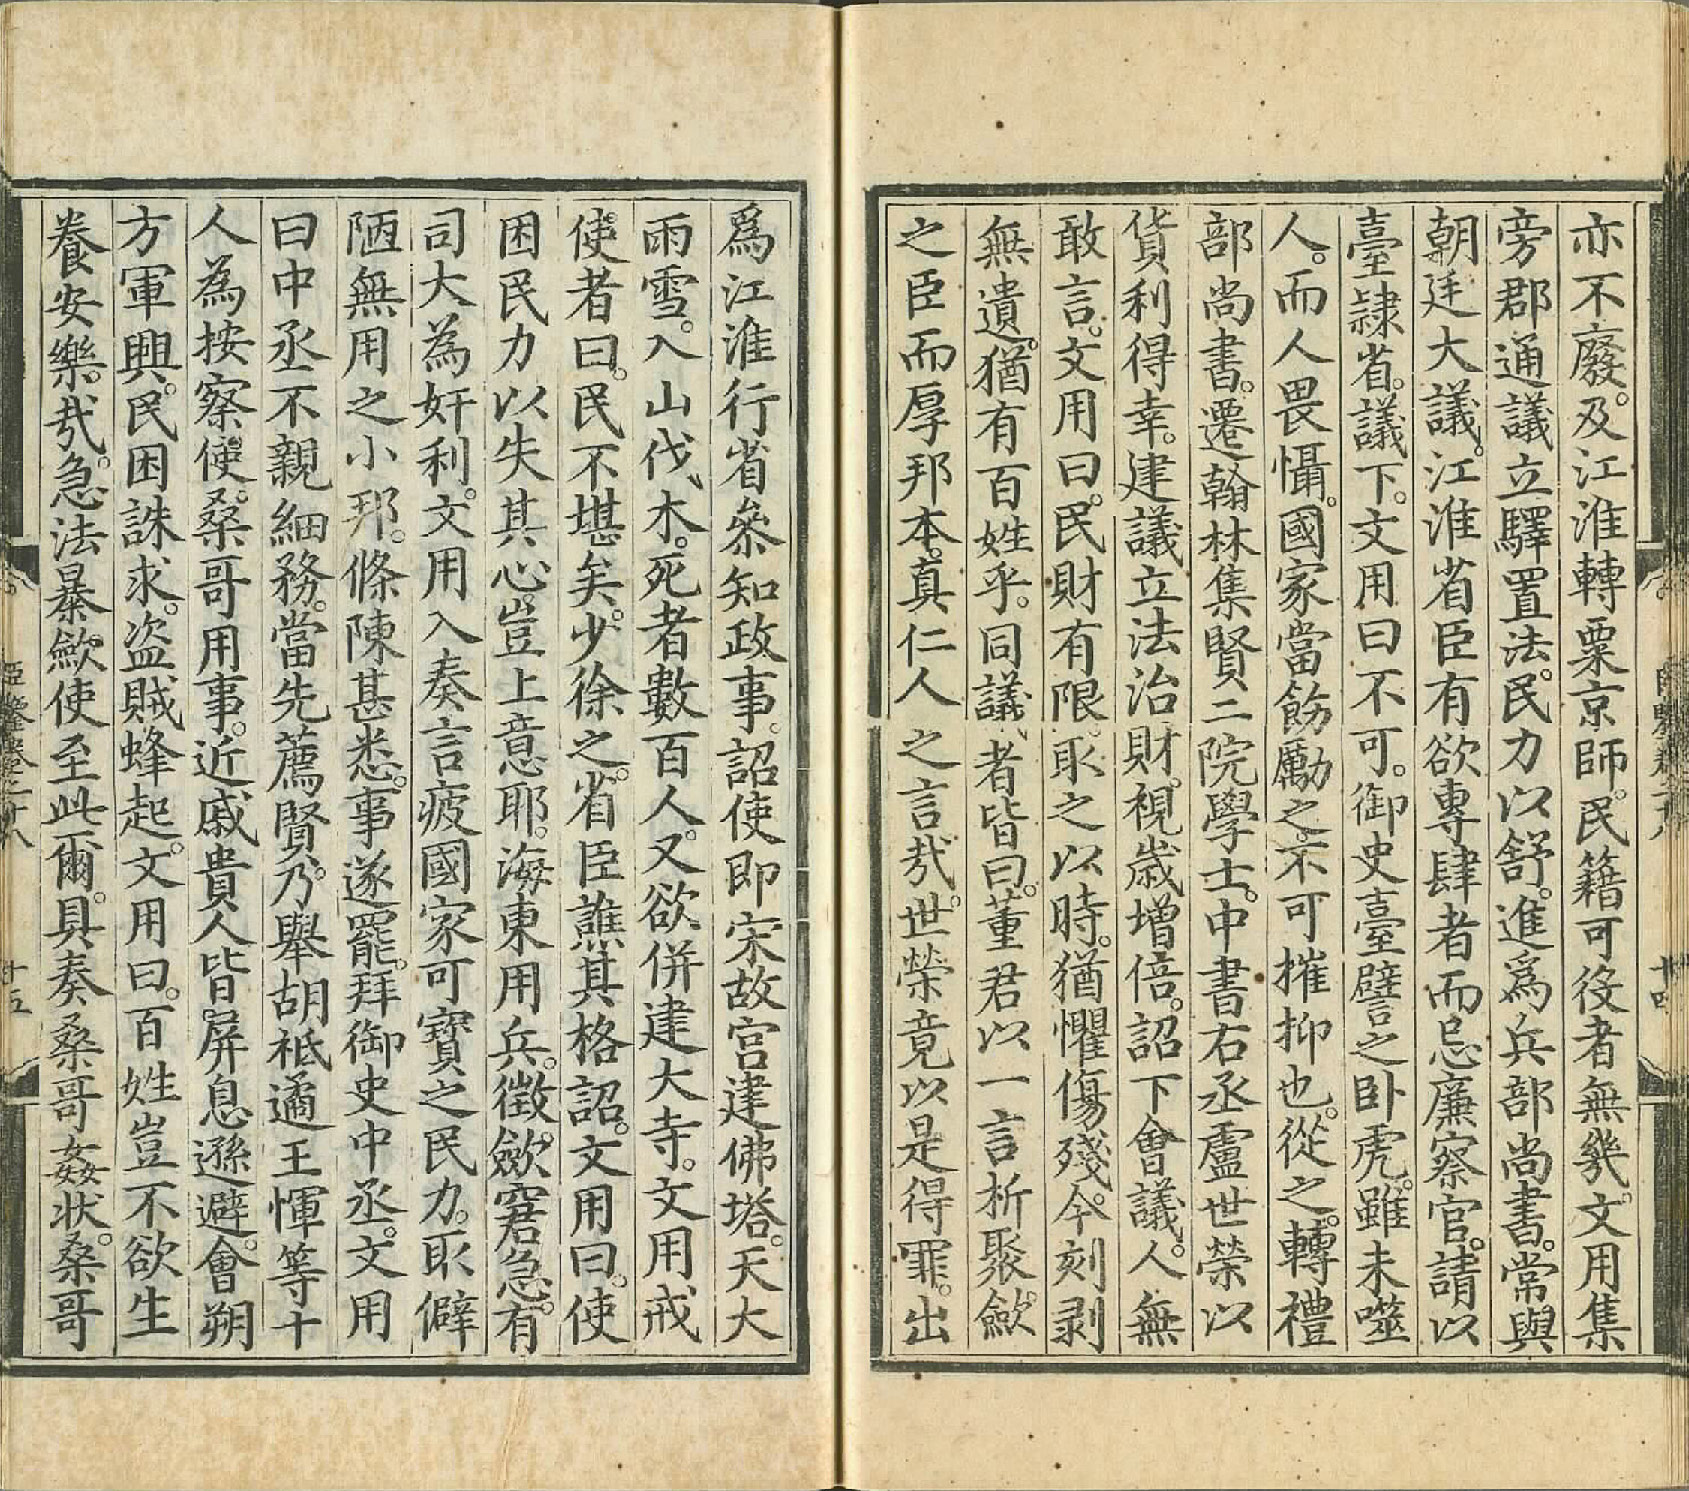 亦不廢。及江淮轉粟京師。民籍可役者無幾。文用集
旁郡通議立驛置法。民力以舒。進爲兵部尚書。常與
朝廷大議。江淮省臣有欲專肆者而忌廉察官。請以
臺隷省。議下。文用曰不可。御史臺譬之卧虎。雖未噬
人。而人畏懾。國家當飭勵之。不可摧抑也。從之。轉禮
部尚書。遷翰林集賢二院學士。中書右丞盧世榮以
貨利得幸。建議立法治財。視歳增倍。詔下會議。人無
敢言。文用曰。民財有限。取之以時。猶懼傷殘。今刻剥
無遺。猶有百姓乎。同議者皆曰。董君以一言析聚斂。
之臣而厚邦本。真仁人之言㦲。世榮竟以是得罪。出
爲江淮行省叅知政事。詔使即宋故宫建佛塔。天大
雨雪。入山伐木。死者數百人。又欲併建大寺。文用戒
使者曰。民不堪矣。少徐之。省臣譙其格詔。文用曰。使
困民力以失其心。豈上意耶。海東用兵。徵斂窘急。有
司大為奸利。文用入奏言疲國家可寳之民力。取僻
陋無用之小邦。條陳甚悉。事遂罷。拜御史中丞。文用
曰中丞不親細務。當先薦賢。乃舉胡祗遹王惲等十
人為按察使。桑哥用事。近戚貴人皆屏息遜避。會朔
方軍興。民困誅求。盗賊蜂起。文用曰。百姓豈不欲生
養安樂㦲。急法暴斂使至此爾。具奏桑哥姦状。桑哥
臣鑒卷之二十八
十五